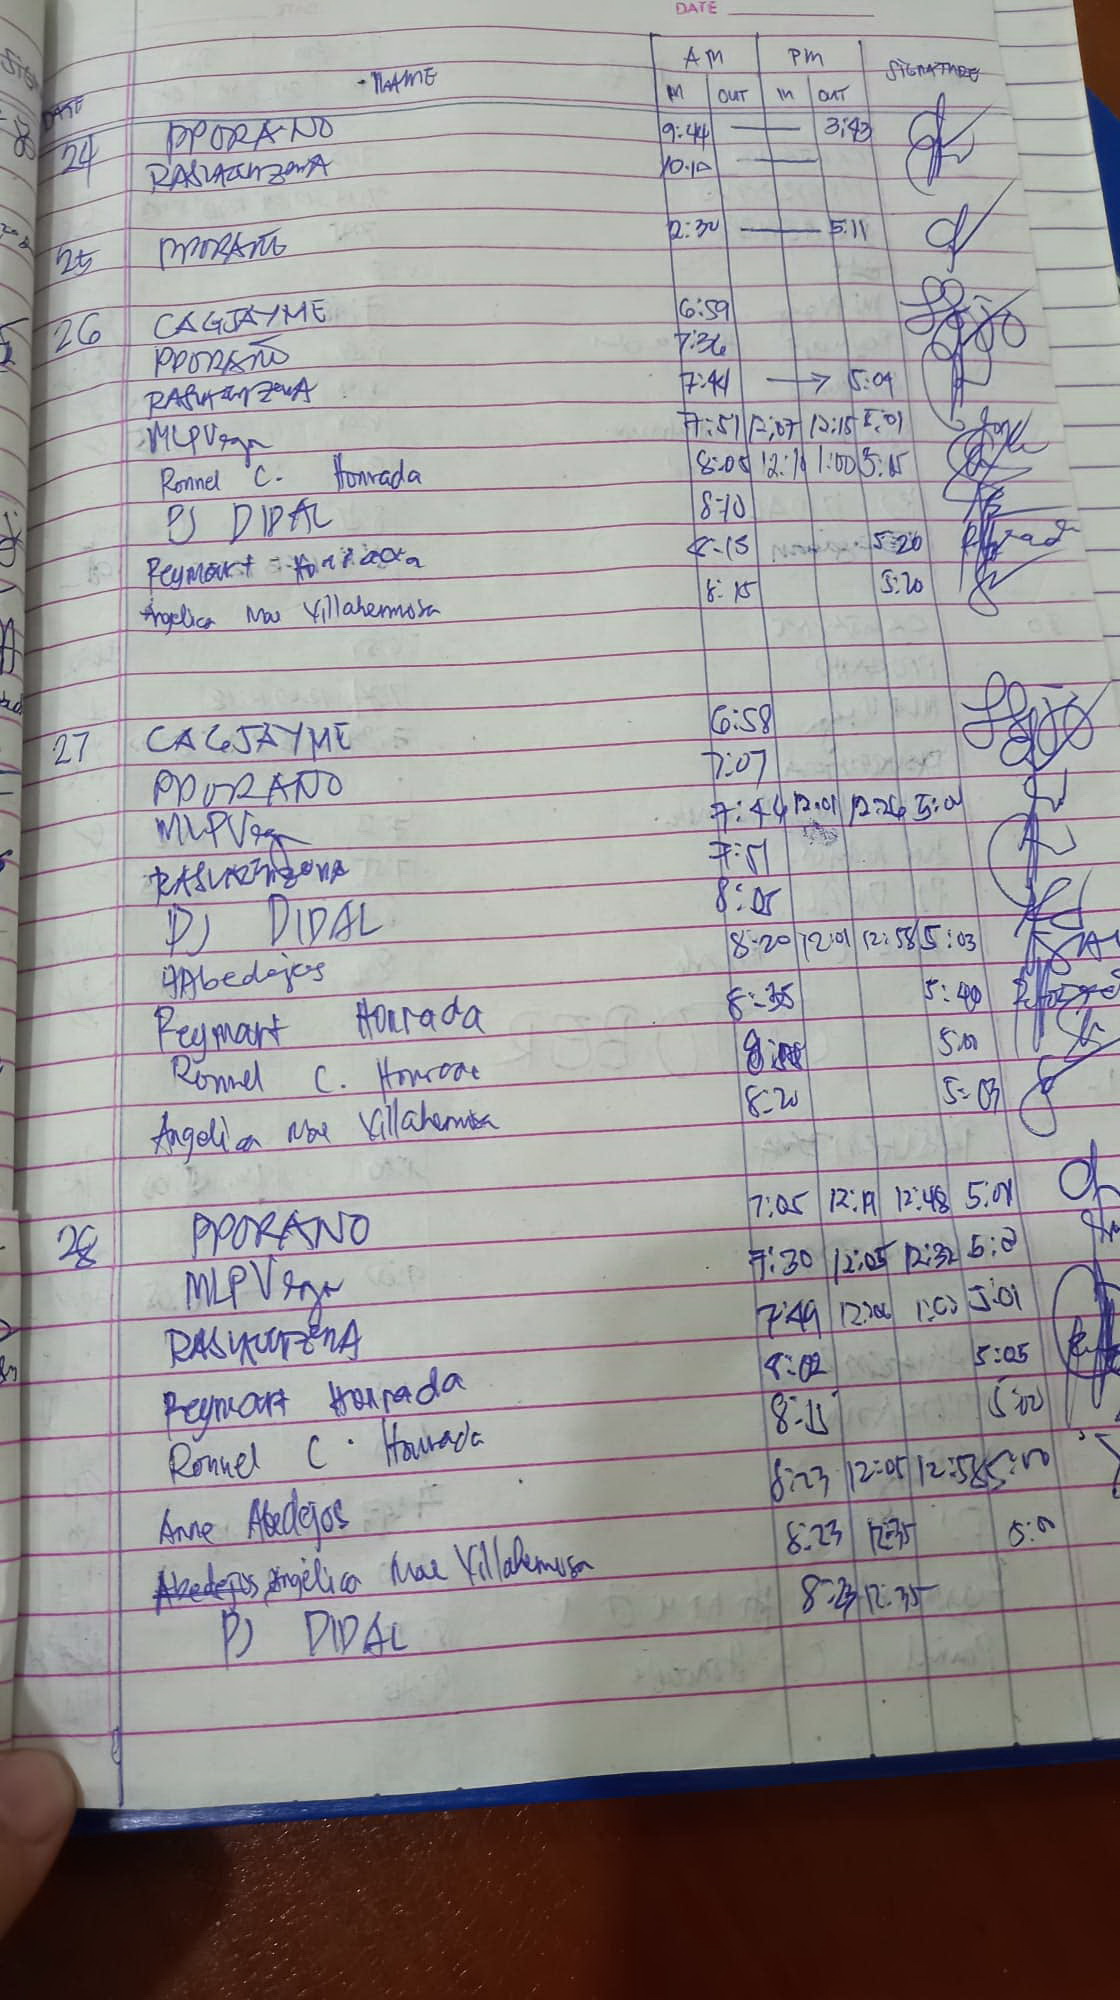 DATE
DATE NAME AM PM SIGNATURE
IN OUT IN OUT
24 PPORANO 9:44 3:43
10:10
25 PPORAÑO 12:30 5:11
26 CAGJAYME 6:59
PPORAÑO 7:36
7:44 5:04
MLPVega 7:51 12:07 12:15 5:01
Ronnel C. Honrada 8:05 1:00 5:15
PJ DIDAL 8:10
Reymart Honrada 8:15 5:20
Angelica Mae Villahermosa 8:15 5:20
27 CAGJAYME 6:58
PPORANO 7:07
MLPVega 7:44 12:01 12:26
7:51
PJ DIDAL 8:05
AAbedejos 8:20 12:01 12:58 5:03
Reymart Honrada 8:35 5:40
Ronnel C. Honrada
Angelica Mae Villahermosa 8:20 5:03
28 PPORANO 7:05 12:48
MLPVega 7:30 12:05 12:32
7:49 5:01
Reymart Honrada 8:02 5:05
Ronnel C. Honrada 5:00
Anne Abedejos 8:23 12:05 12:58 5:00
Abedejos Angelica Mae Villahermosa 8:23 12:35
PJ DIDAL 8:23 12:35